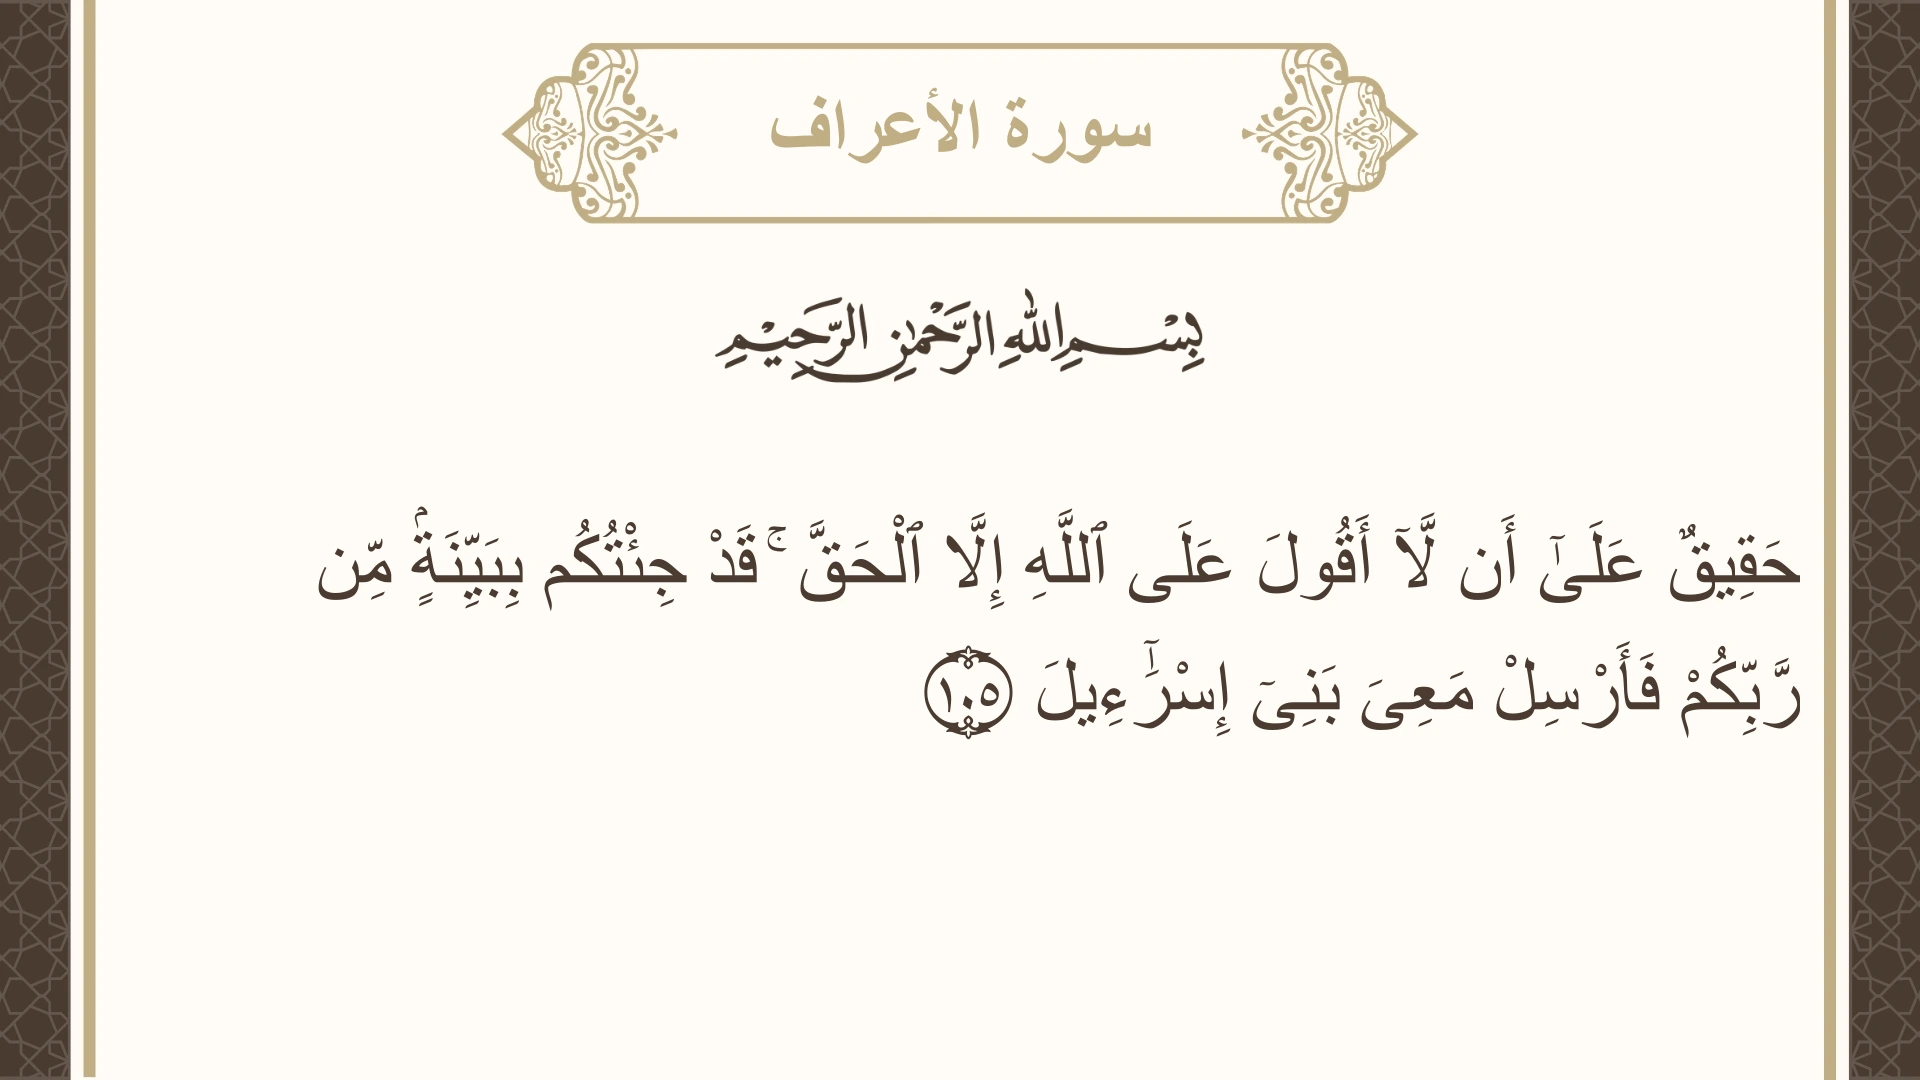 سورة الأعراف
بِسْمِ اللهِ الرَّحْمٰنِ الرَّحِيْمِ
حَقِيقٌ عَلَىٰٓ أَن لَّآ أَقُولَ عَلَى ٱللَّهِ إِلَّا ٱلْحَقَّ ۚ قَدْ جِئْتُكُم بِبَيِّنَةٍۢ مِّن
رَّبِّكُمْ فَأَرْسِلْ مَعِىَ بَنِىٓ إِسْرَٰٓءِيلَ ١٠٥